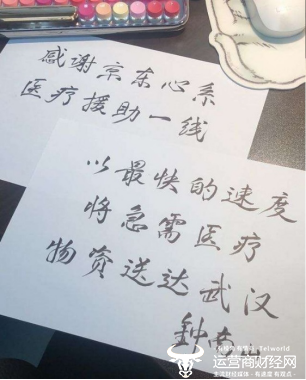 感谢京东心系
医疗援助一线
以最快的速度
将急需医疗
物资送达武汉
钟南山
运营商财经网